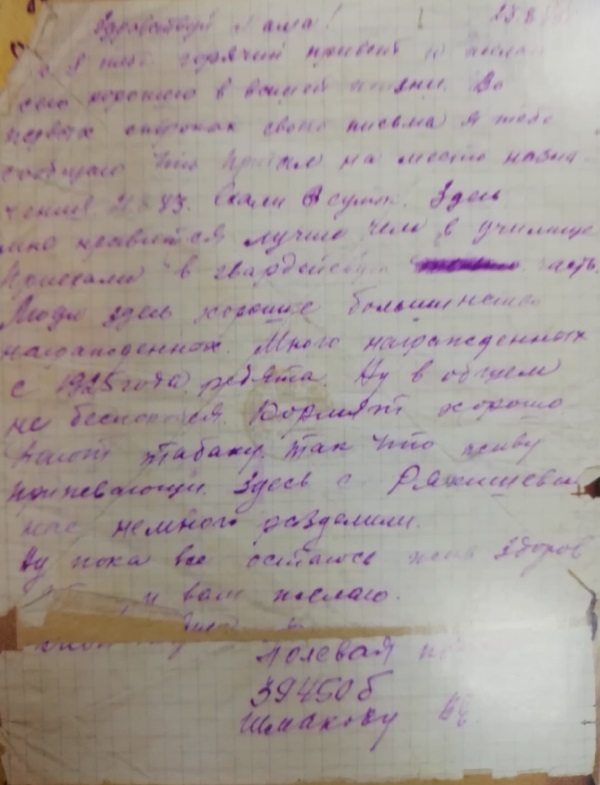 Здравствуй Мама!
горячий привет и
всего хорошего в вашей жизни. Во
первых строчках своего письма я тебе
сообщаю что прибыл на место назна-
чения Ехали суток. Здесь
мне нравится лучше чем в училище
Приехали в гвардейскую часть.
Люди здесь хорошие большинство
награжденных. Много награжденных
с 1925 года ребята. Ну в общем
не беспокойся. Кормят хорошо
табаку, так что живу
припеваючи. Здесь с
нас немного разделили.
Ну пока все осталось жив здоров
и вам желаю.
Полевая
39450б
Шмакову